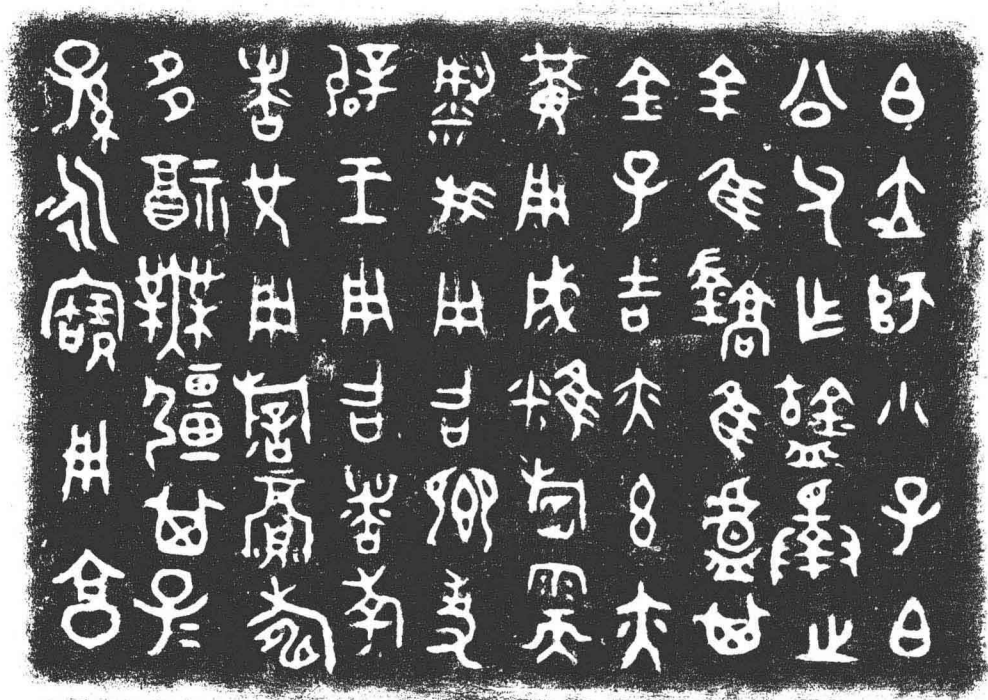 白大師小子白
公父乍𥂴擇之
金隹鐈隹盧其
金孔吉亦玄亦
黃用成糕稻需
粱我用召卿事
辟王用召者考
者兄用祈眉壽
多福無疆其子
孫永寶用享